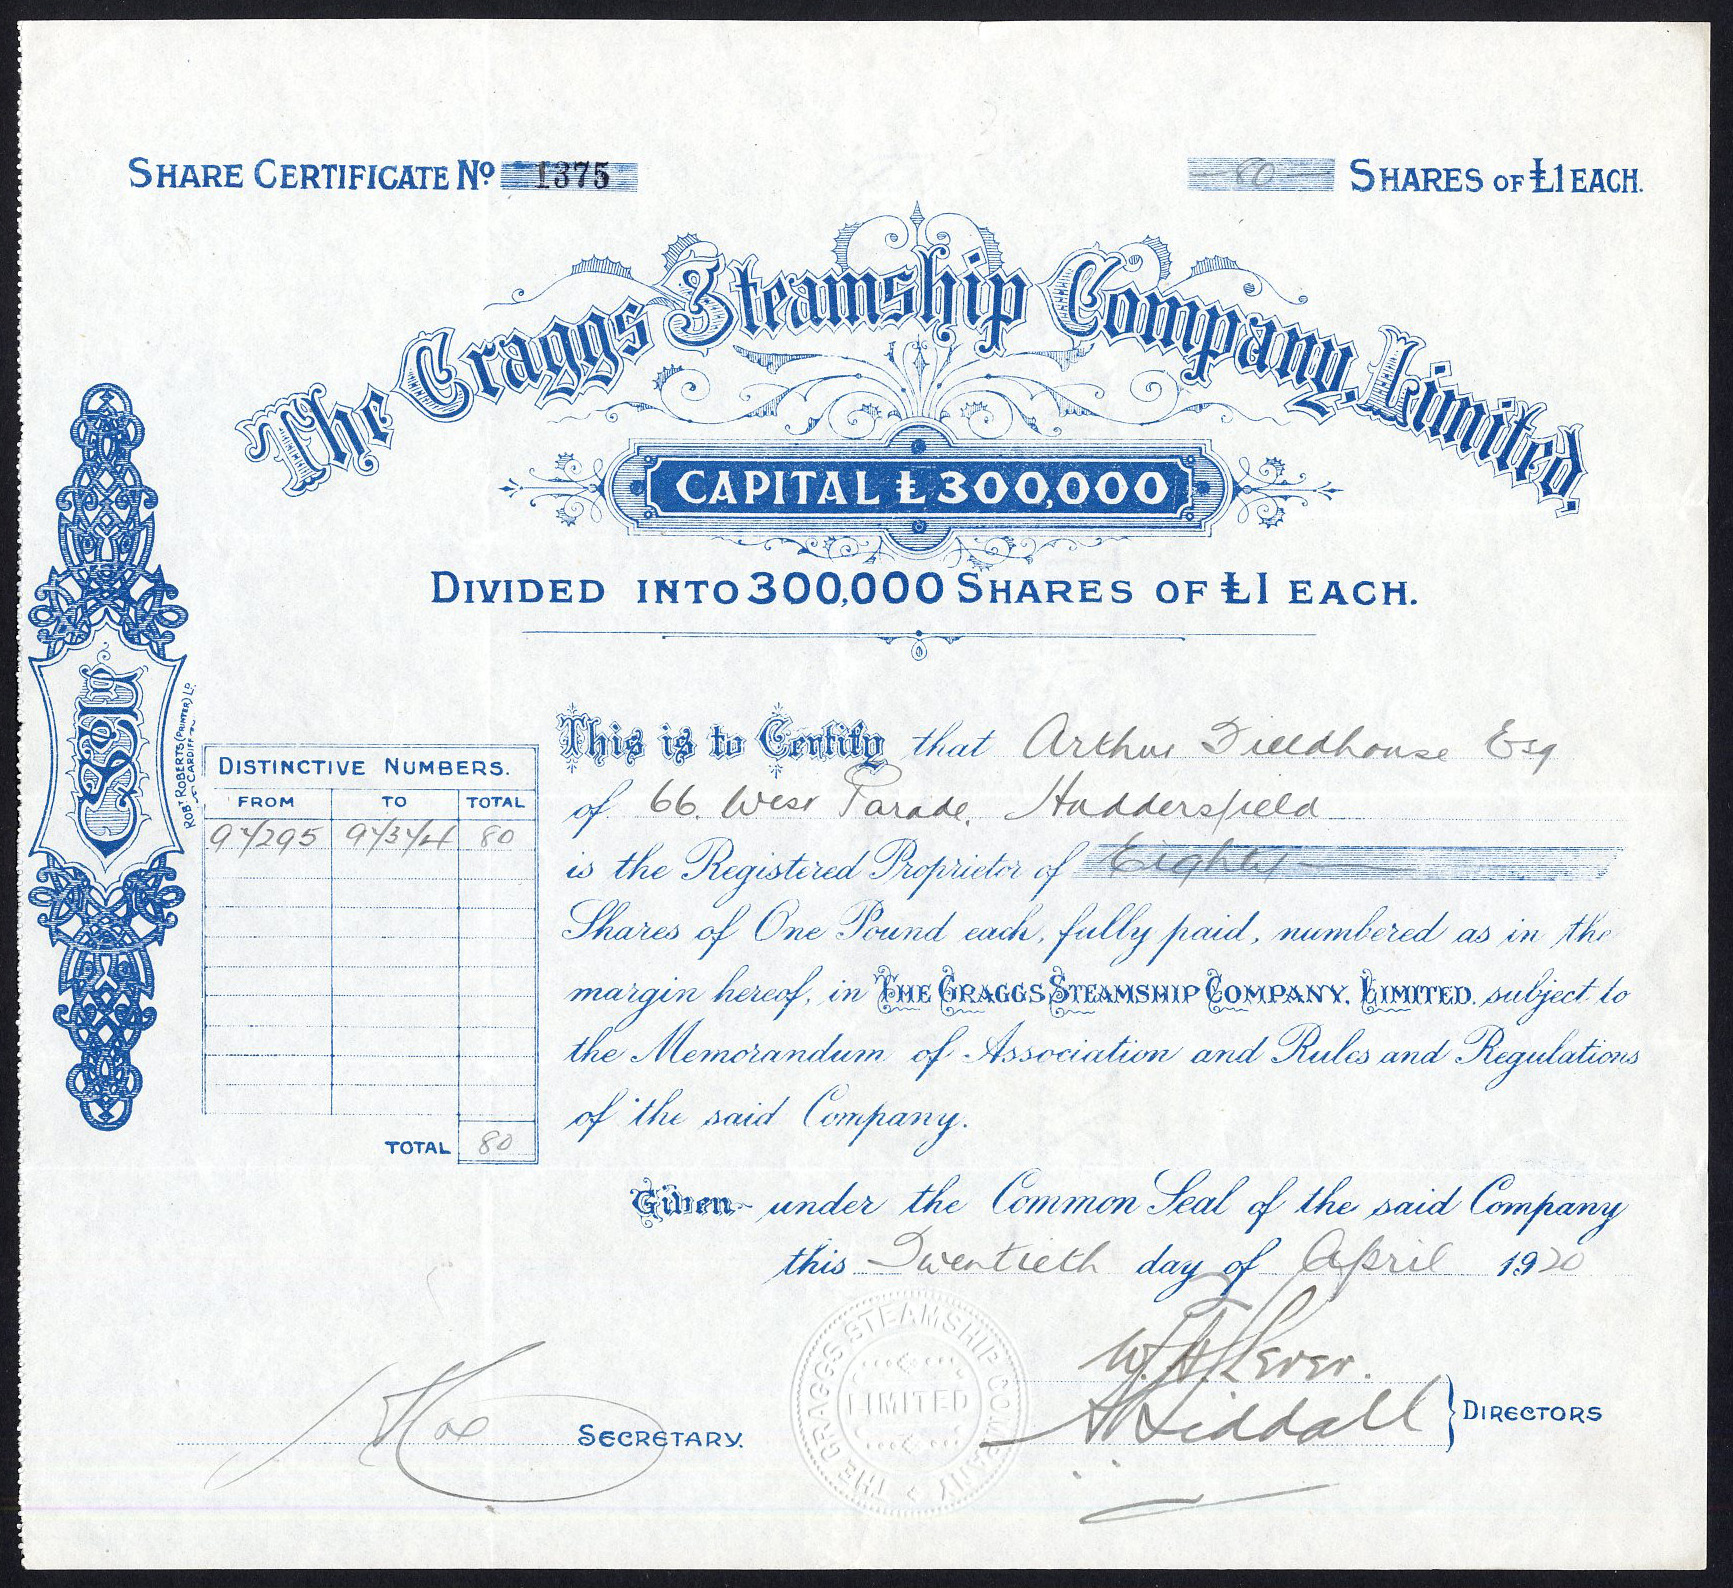 SHARE CERTIFICATE No 1375
80 SHARES OF £1 EACH.
The Craggs Steamship Company, Limited.
CAPITAL £300,000
DIVIDED INTO 300,000 SHARES OF £1 EACH.
CSLy
ROBT ROBERTS (PRINTER) LD
CARDIFF
DISTINCTIVE NUMBERS.
FROM TO TOTAL
97295 97374 80
TOTAL 80
This is to Certify that Arthur Fieldhouse Esq
of 66. West Parade, Huddersfield
is the Registered Proprietor of Eighty
Shares of One Pound each, fully paid, numbered as in the
margin hereof, in THE CRAGGS STEAMSHIP COMPANY, LIMITED, subject to
the Memorandum of Association and Rules and Regulations
of the said Company.
Given under the Common Seal of the said Company
this Twentieth day of April 1920
THE CRAGGS STEAMSHIP COMPANY
LIMITED
SECRETARY.
DIRECTORS